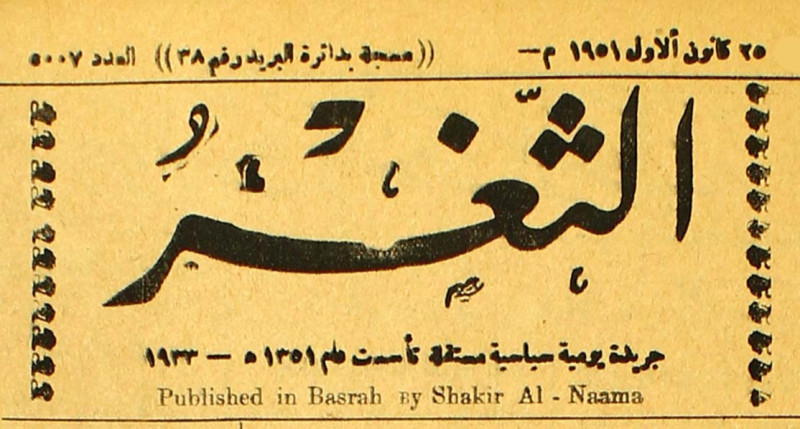 ٢٥ كانون الاول ١٩٥١ م — ((مسجلة بدائرة البريد رقم ٣٨)) العدد ٥٠٠٧
الثَّغْرُ
جريدة يومية سياسية مستقلة تأسست عام ١٣٥١ ه — ١٩٣٣
Published in Basrah By Shakir Al - Naama